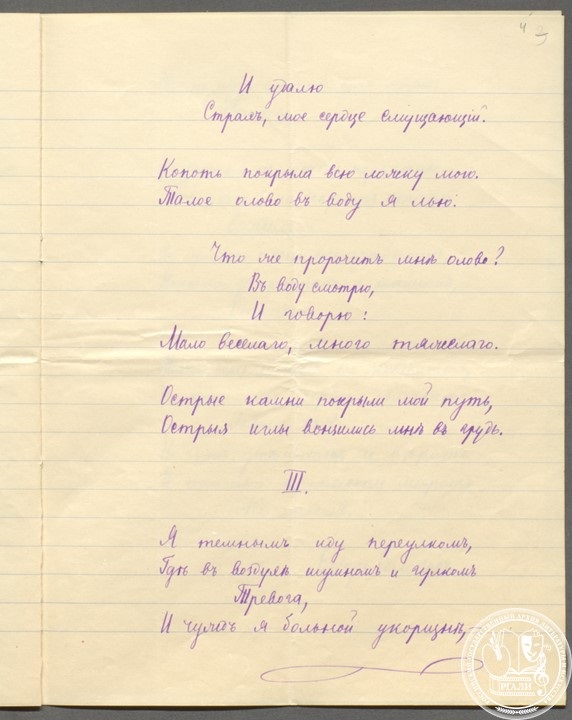 4 3
И удалю
Страхъ, мое сердце смущающій.
Копоть покрыла всю ложку мою.
Талое олово въ воду я лью.
Что же пророчитъ мнѣ олово?
Въ воду смотрю,
И говорю:
Мало веселаго, много тяжелаго.
Острые камни покрыли мой путь,
Острыя иглы вонзились мнѣ въ грудь.
III.
Я темнымъ иду переулкомъ,
Гдѣ въ воздухѣ шумномъ и гулкомъ
Тревога,
И чуждъ я больной укоризнѣ,
РГАЛИ